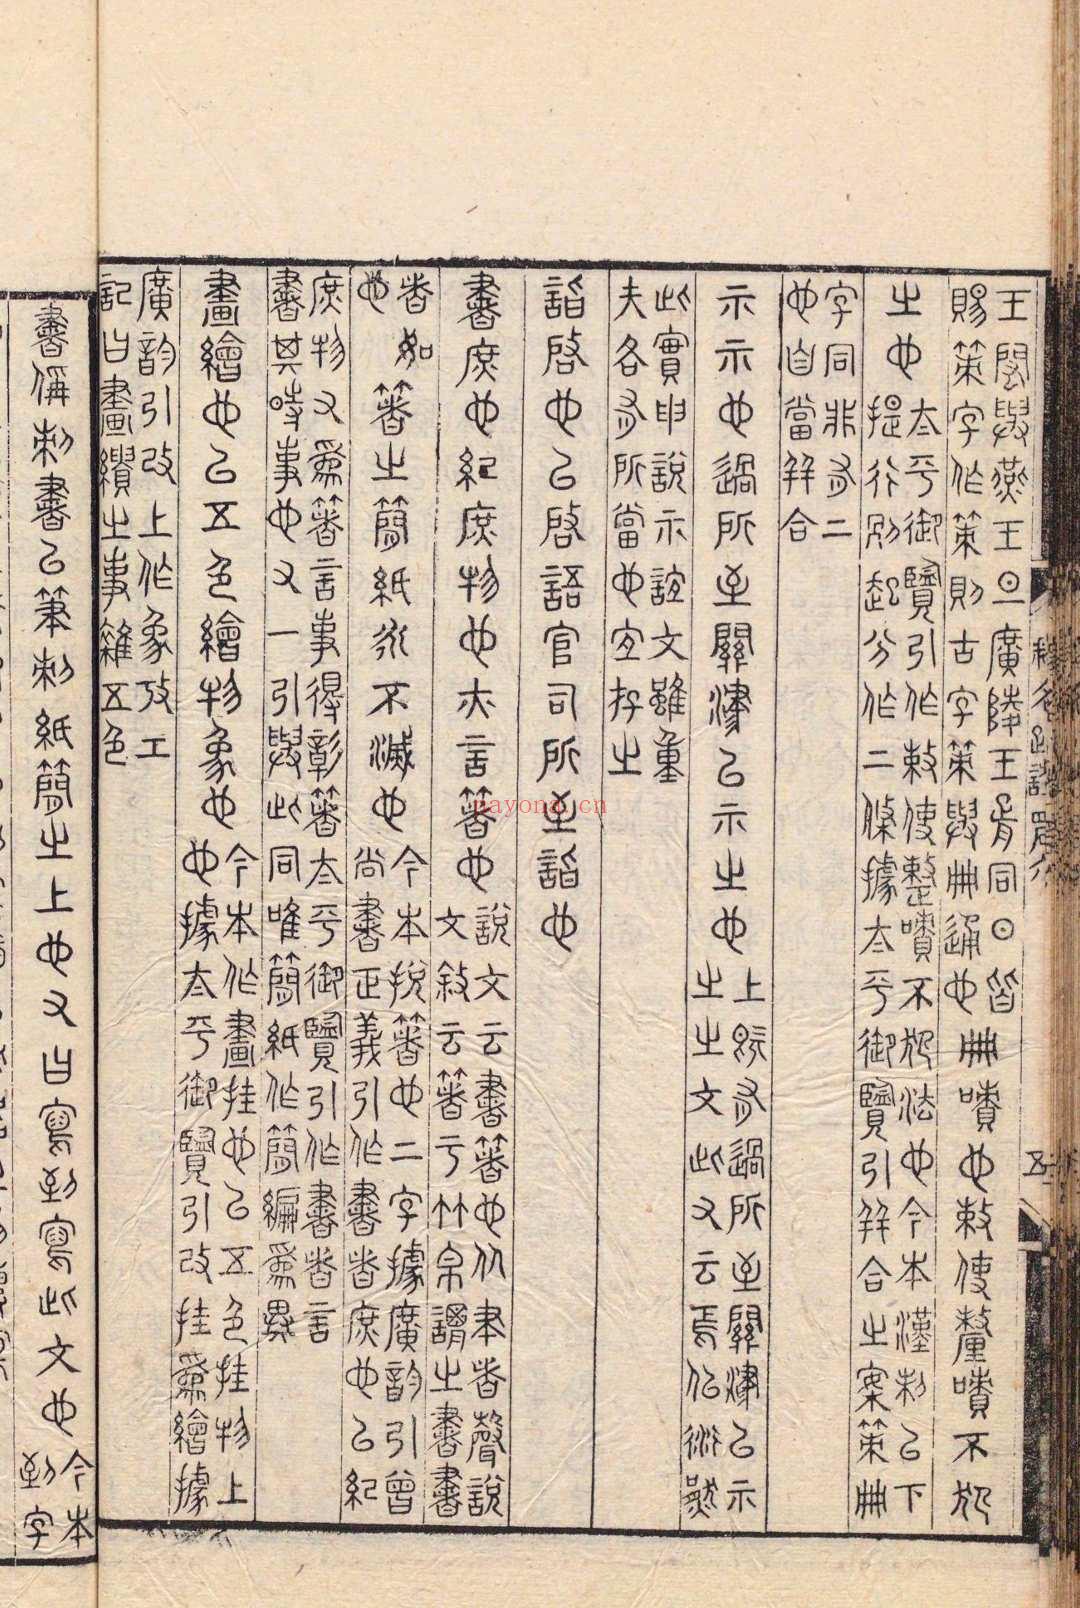 王閎與燕王旦廣陵王胥同日皆
賜策字作策則古字策與冊通也
冊嘖也敕使釐嘖不犯
之也
太平御覽引作敕使整嘖不犯法也今本漢制以下
提行別起分作二條據太平御覽引并合之案策冊
字同非有二
也自當并合
示示也過所至關津以示之也
上有過所至關津以示
之之文此又云焉似衍歟
此實申說示誼文雖重
夫各有所當也宜存之
詣啟也以啟語官司所至詣也
書庶也紀庶物也亦言著也
說文云書著也从聿者聲說
文敘云著于竹帛謂之書書
者如
也
著之簡紙永不滅也
今本挩著也二字據廣韵引曾
尚書正義引作書者庶也以紀
庶物又爲著言事得彰著太平御覽引作書者言
書其時事也又一引與此同唯簡紙作簡編爲異
畫繪也以五色繪物象也
今本作畫挂也以五色挂物上
也據太平御覽引改挂爲繪據
廣韵引改上作象攷工
記曰畫繢之事雜五色
釋名疏證
五
書偁刺書以筆刺紙簡之上也又曰寫到寫此文也
今本
到字
nayona.cn